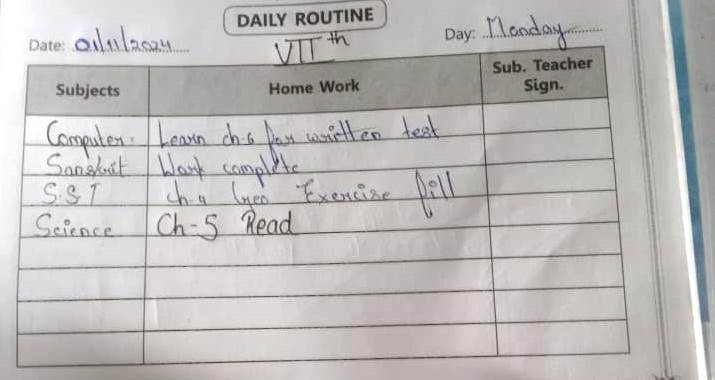 DAILY ROUTINE
Date: 01/11/2024 Day: Monday
VIIth
Subjects Home Work Sub. Teacher Sign.
Computer. Learn ch-6 for written test
Sanskrit Work complete
S.S.T ch-4 Geo Exercise fill
Science Ch-5 Read